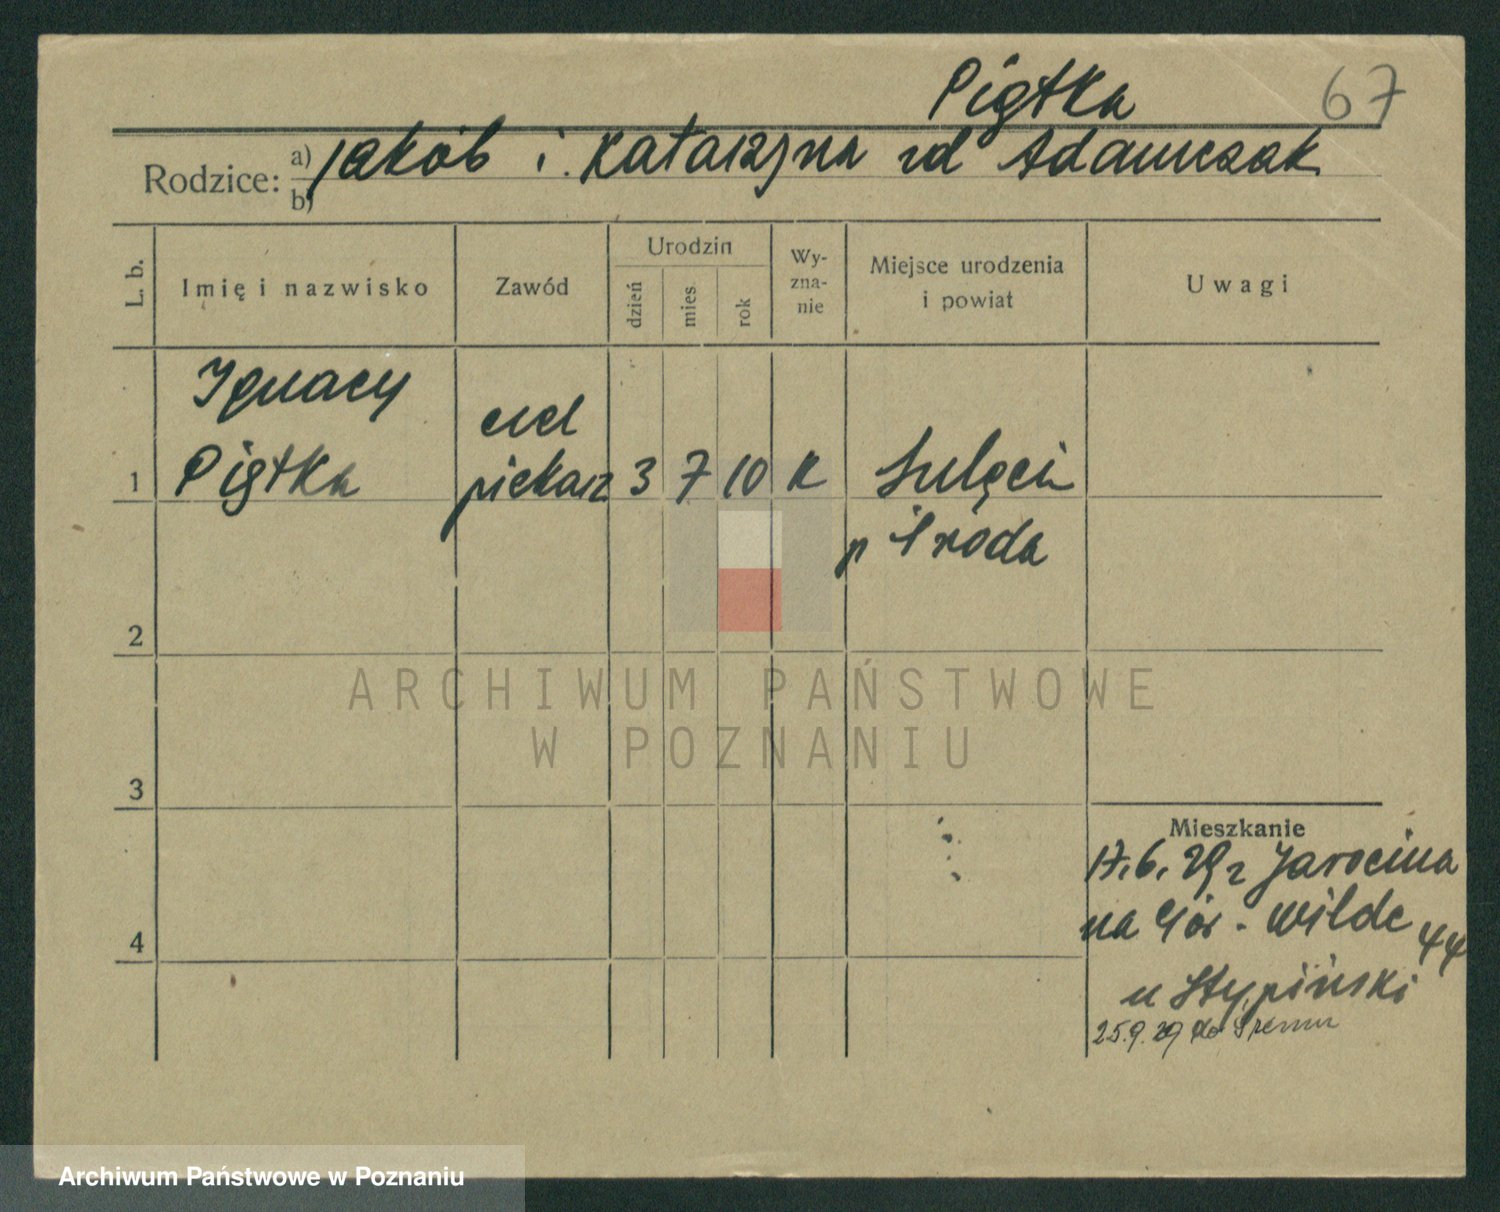 Piątka 67
Rodzice: a) Jakób i Katarzyna zd Adamczak
b)
L. b. Imię i nazwisko Zawód Urodzin dzień mies rok Wy-zna-nie Miejsce urodzenia i powiat Uwagi
Ignacy
1 Piątka czel piekarz 3 7 10 K Sulęcin
p Środa
2
ARCHIWUM PAŃSTWOWE
W POZNANIU
3
Mieszkanie
17.6.29 z Jarocina
4 na Gór. Wilde 44
u Stypiński
25.9.29 do Śremu
Archiwum Państwowe w Poznaniu